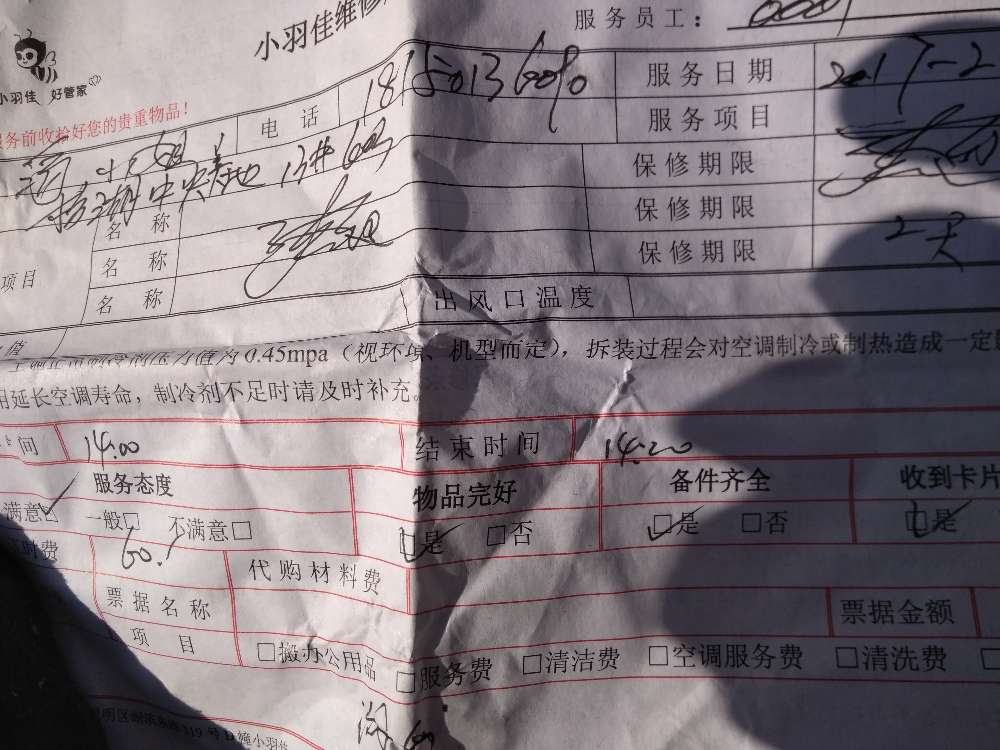 小羽佳维修
服务员工：
小羽佳 好管家
务前收拾好您的贵重物品！
电话 18150136090 服务日期 2017-2
服务项目
小姐
中央基地13#
保修期限
名称
保修期限
项目 名称
保修期限 2天
名称
出风口温度
值
值为0.45mpa（视环境、机型而定），拆装过程会对空调制冷或制热造成一定
用延长空调寿命，制冷剂不足时请及时补充。
间 14:00 结束时间 14:20
服务态度 物品完好 备件齐全 收到卡片
满意☑ 一般□ 不满意□ ☑是 □否 ☑是 □否 ☑是
时费 60. 代购材料费
票据名称 票据金额
项目 □搬办公用品 □服务费 □清洁费 □空调服务费 □清洗费 □
319号
小羽佳